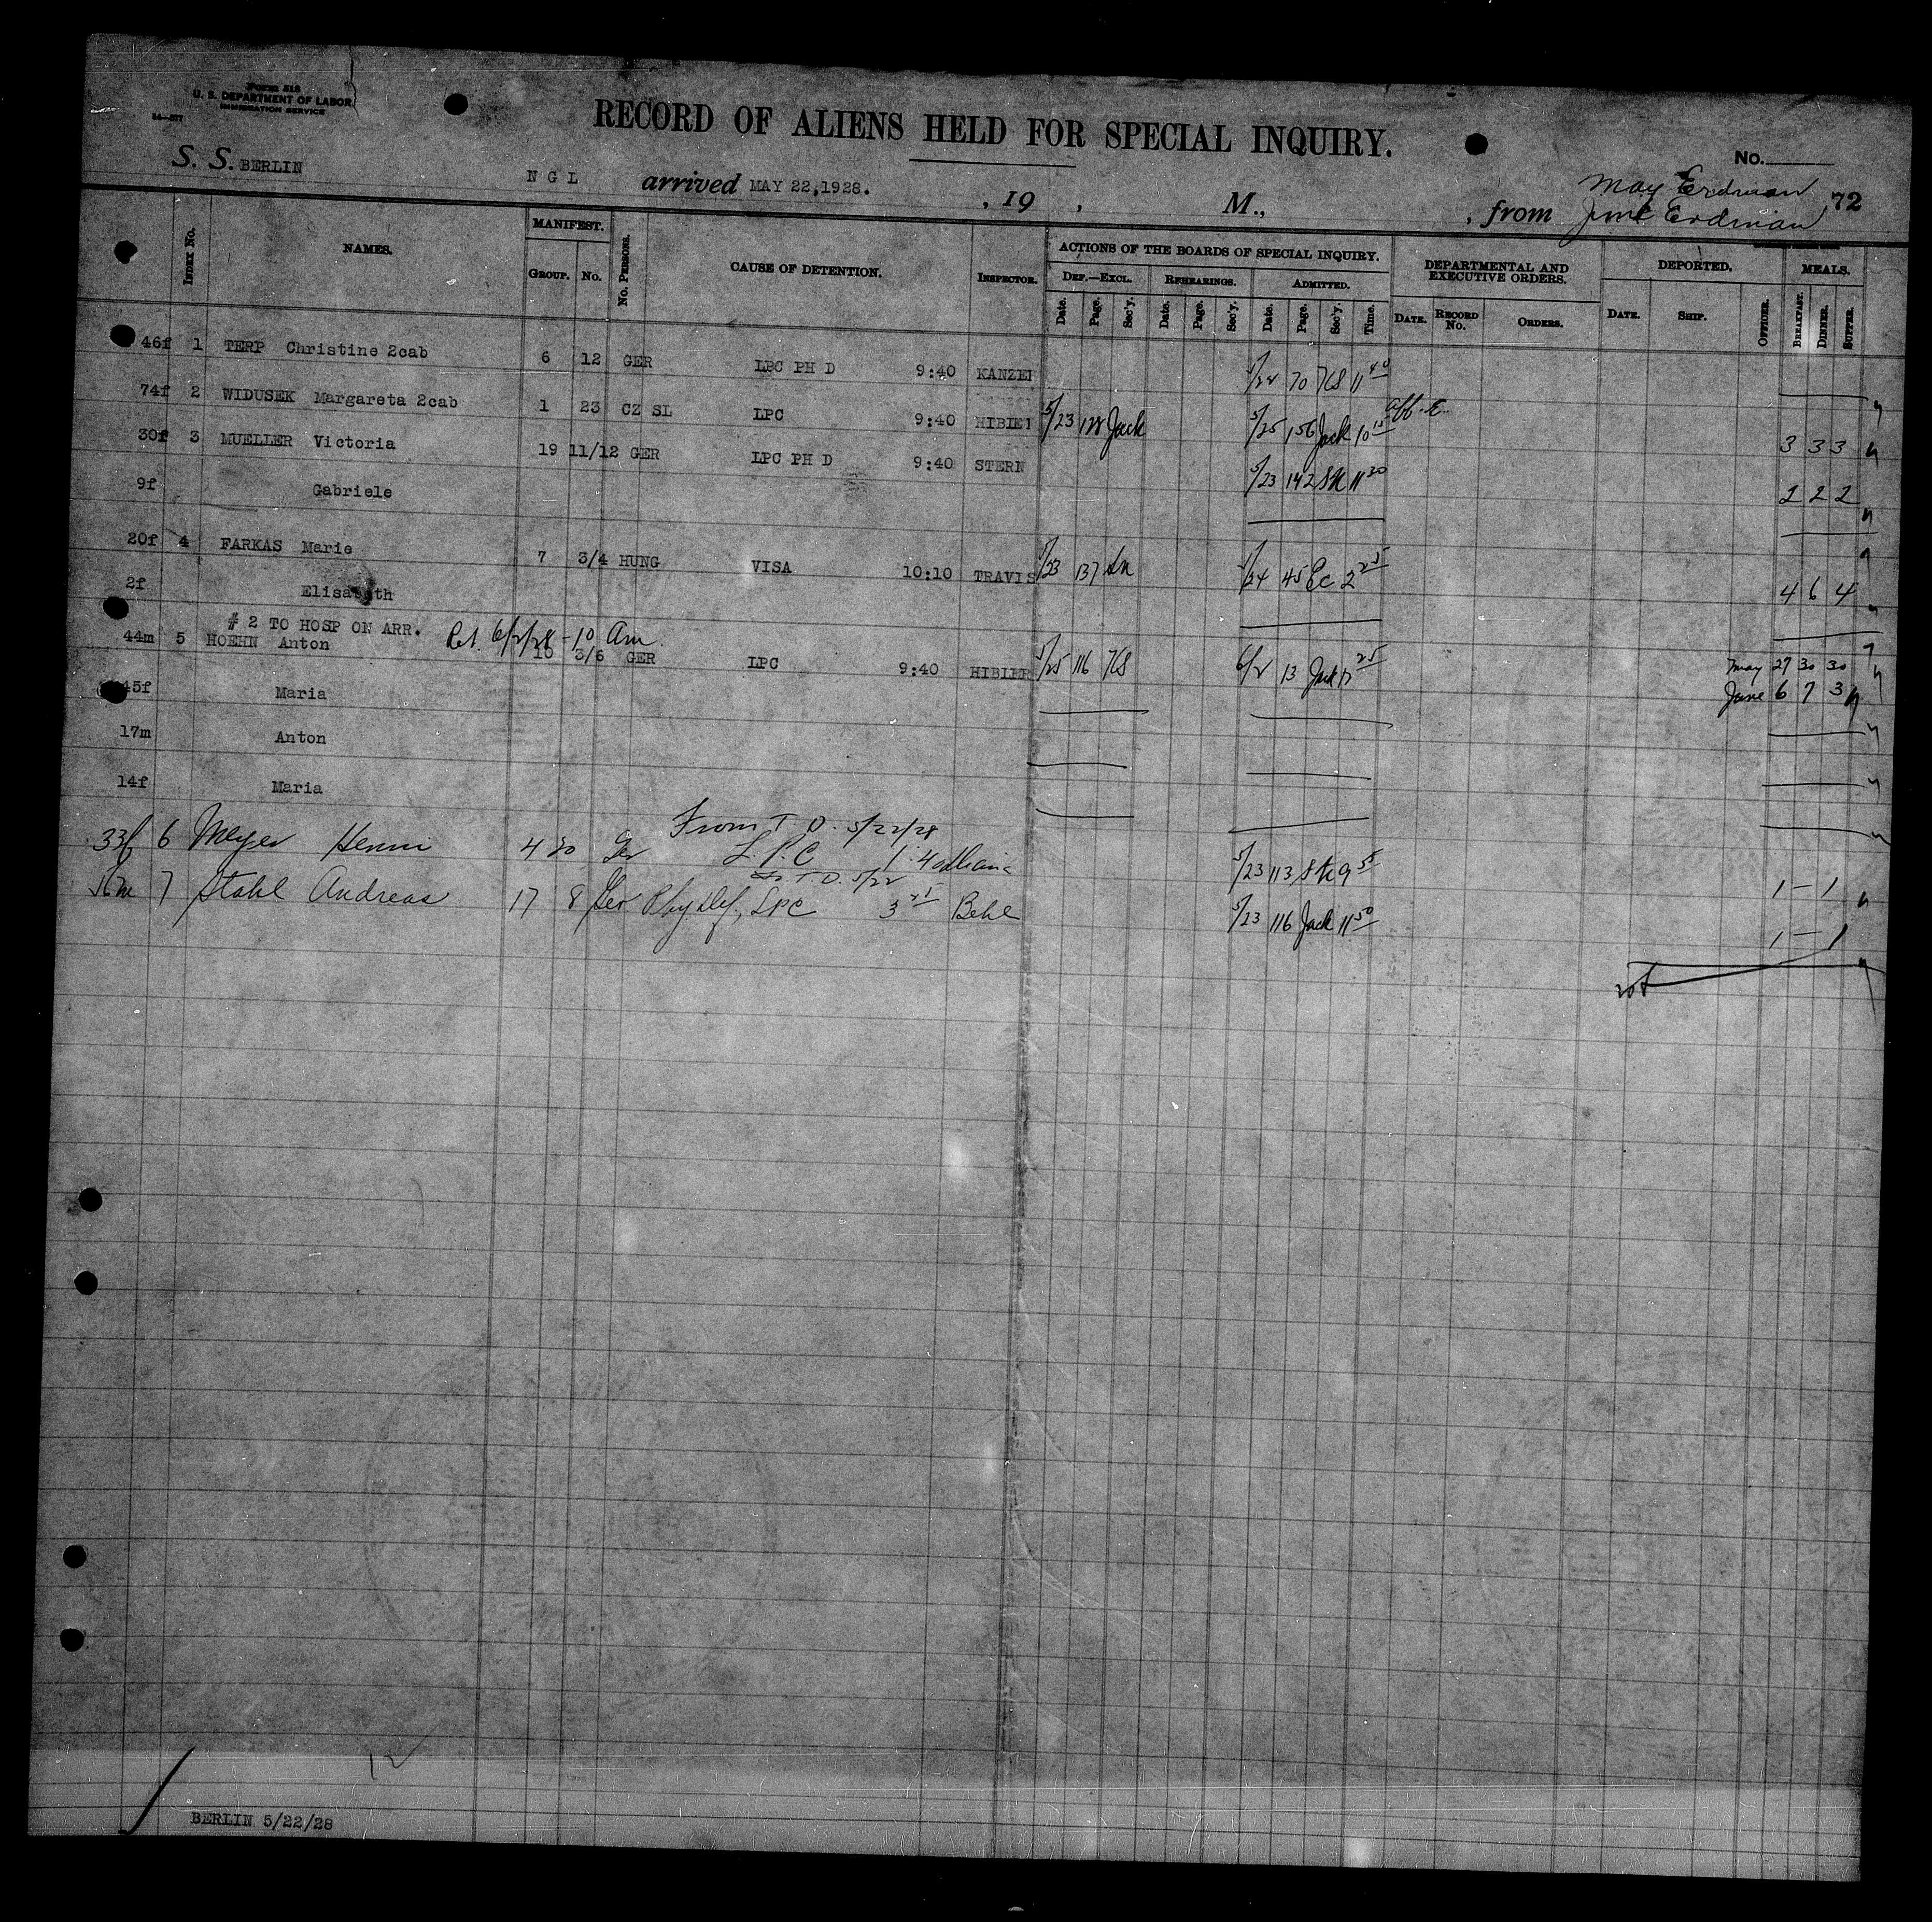 Form 518
U. S. DEPARTMENT OF LABOR
IMMIGRATION SERVICE
14—577
RECORD OF ALIENS HELD FOR SPECIAL INQUIRY.
No.
S. S. BERLIN N G L arrived MAY 22,1928. , 19 , M., , from May Erdman 72
June Erdman
Index No. NAMES. MANIFEST. GROUP. No. No. PERSONS. CAUSE OF DETENTION. INSPECTOR. ACTIONS OF THE BOARDS OF SPECIAL INQUIRY. DEPARTMENTAL AND EXECUTIVE ORDERS. DEPORTED. MEALS.
DEF.—EXCL. REHEARINGS. ADMITTED.
Date. Page. Sec'y. Date. Page. Sec'y. Date. Page. Sec'y. Time. DATE. RECORD No. ORDERS. DATE. SHIP. OFFICER. BREAKFAST. DINNER. SUPPER.
46f 1 TERP Christine 2cab 6 12 GER LPC PH D 9:40 KANZEI 5/24 70 KS 11 40
74f 2 WIDUSEK Margareta 2cab 1 23 CZ SL LPC 9:40 HIBIEI 5/23 128 Jack 5/25 156 Jack 10 15 3 3 3
30f 3 MUELLER Victoria 19 11/12 GER LPC PH D 9:40 STERN 5/23 142 SK 11 30 2 2 2
9f Gabriele
20f 4 FARKAS Marie 7 3/4 HUNG VISA 10:10 TRAVIS 5/23 137 5/24 45 Ec 2 25 4 6 4
2f Elisabeth
# 2 TO HOSP ON ARR. Ret. 6/2/28 - 10 Am
44m 5 HOEHN Anton 10 3/6 GER LPC 9:40 HIBIER 5/25 116 KS 6/2 13 Jack 12 25 May 27 30 30
45f Maria June 6 7 3
17m Anton
14f Maria
From T D. 5/22/28
33f 6 Meyer Henni 4 20 Ger L.P.C 5/23 113 SK 9 55 1 – 1
T D. 5/22
7 Stahl Andreas 17 8 Ger Phy Def., LPC 3 Behl 5/23 116 Jack 11 50 1 – 1
12
BERLIN 5/22/28